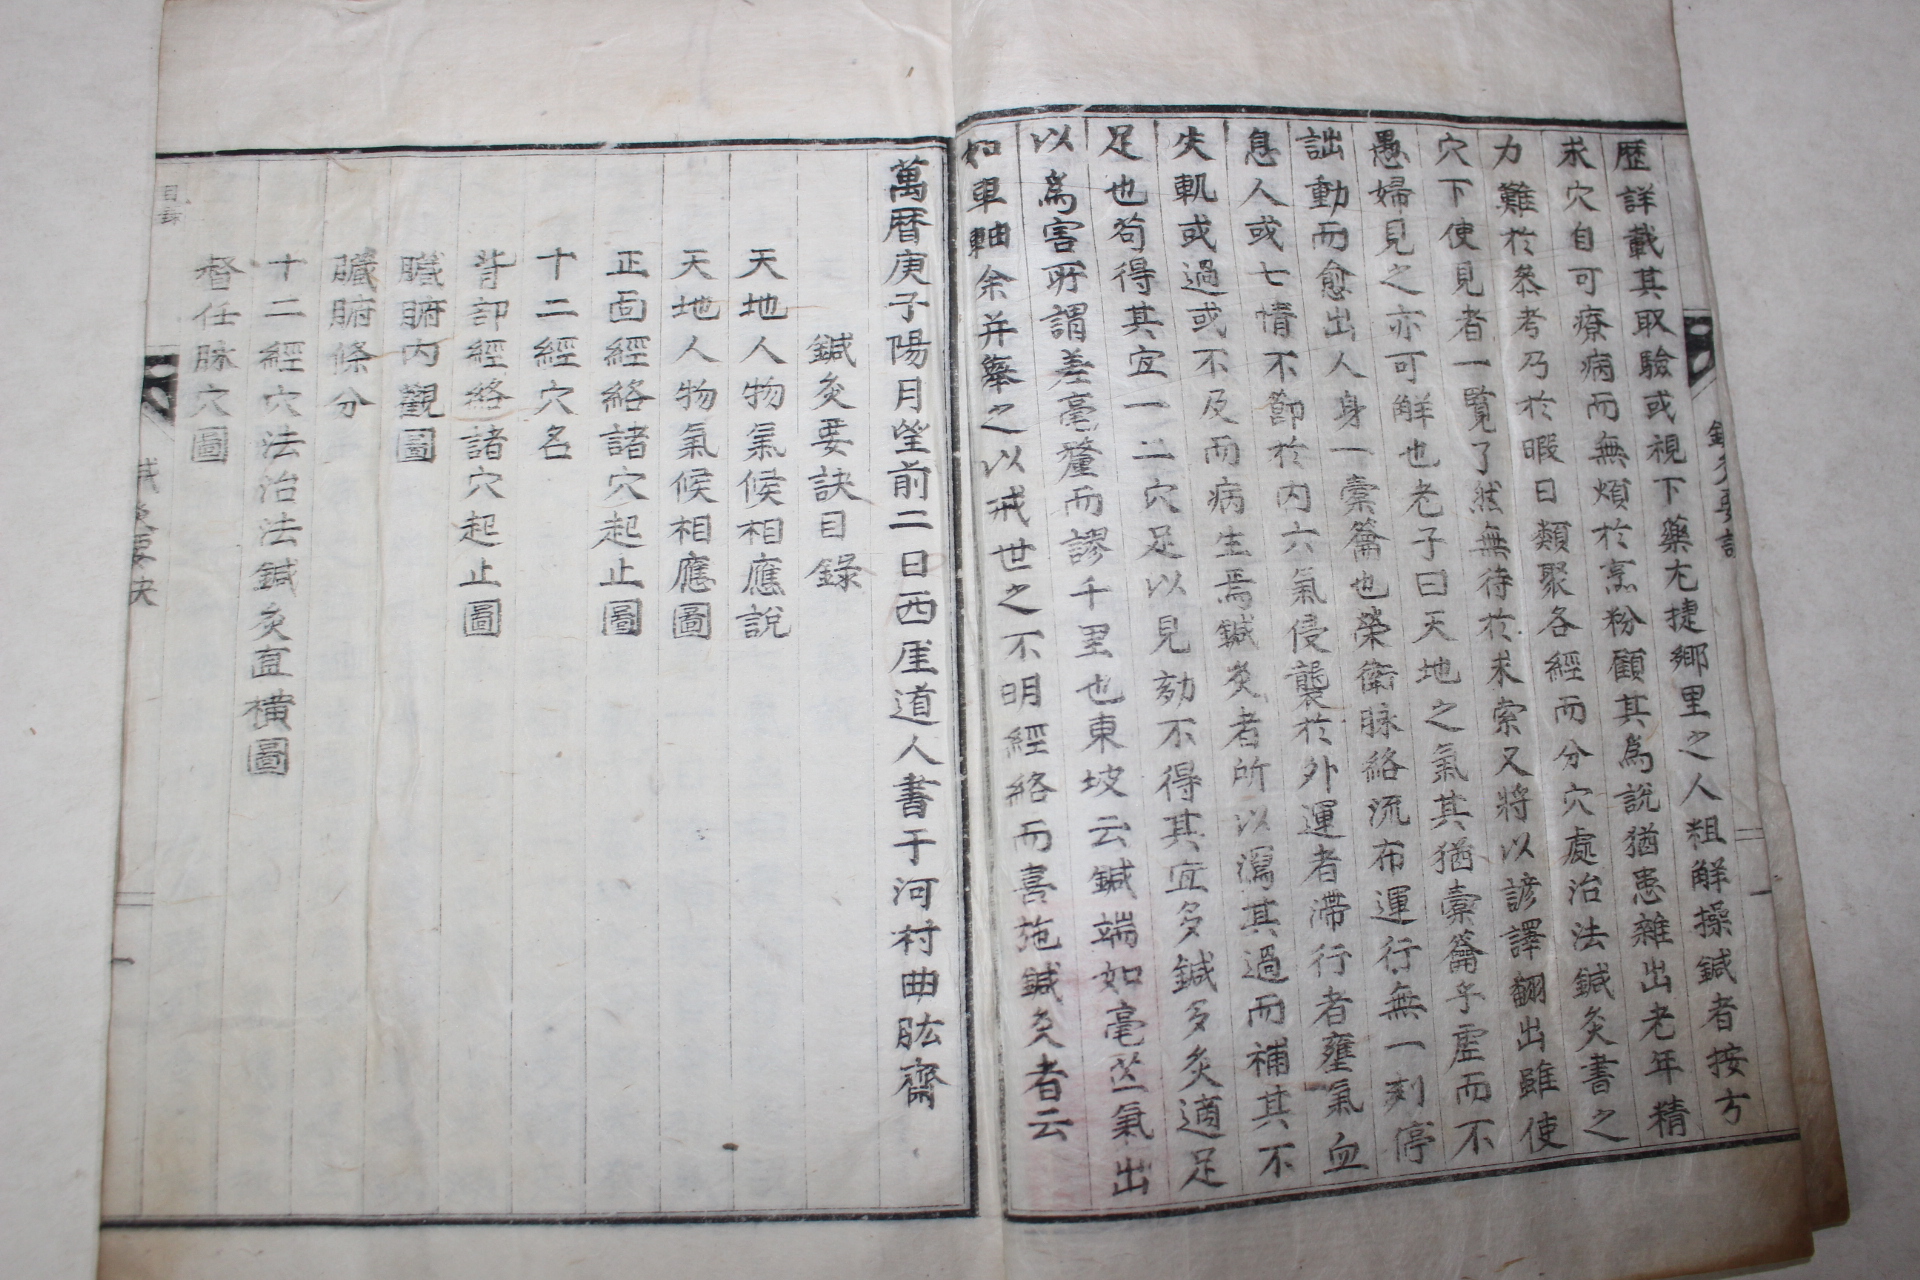 歷詳載其取驗或視下藥尤捷鄉里之人粗解操鍼者按方
求穴自可療病而無煩於烹粉顧其爲說猶患雜出老年精
力難於叅考乃於暇日類聚各經而分穴處治法鍼灸書之
穴下使見者一覽了然無待於求索又將以諺譯翻出雖使
愚婦見之亦可解也老子曰天地之氣其猶橐籥乎虛而不
詘動而愈出人身一橐籥也榮衛脉絡流布運行無一刻停
息人或七情不節於內六氣侵襲於外運者滯行者壅氣血
失軌或過或不及而病生焉鍼灸者所以瀉其過而補其不
足也苟得其宜一二穴足以見効不得其宜多鍼多灸適足
以爲害所謂差毫釐而謬千里也東坡云鍼端如毫芒氣出
如車軸余并擧之以戒世之不明經絡而喜施鍼灸者云
萬曆庚子陽月望前二日西厓道人書于河村曲肱齋
鍼灸要訣目錄
天地人物氣候相應說
天地人物氣候相應圖
正面經絡諸穴起止圖
十二經穴名
背部經絡諸穴起止圖
臟腑內觀圖
臟腑條分
十二經穴法治法鍼灸直橫圖
督任脉穴圖
目錄
一